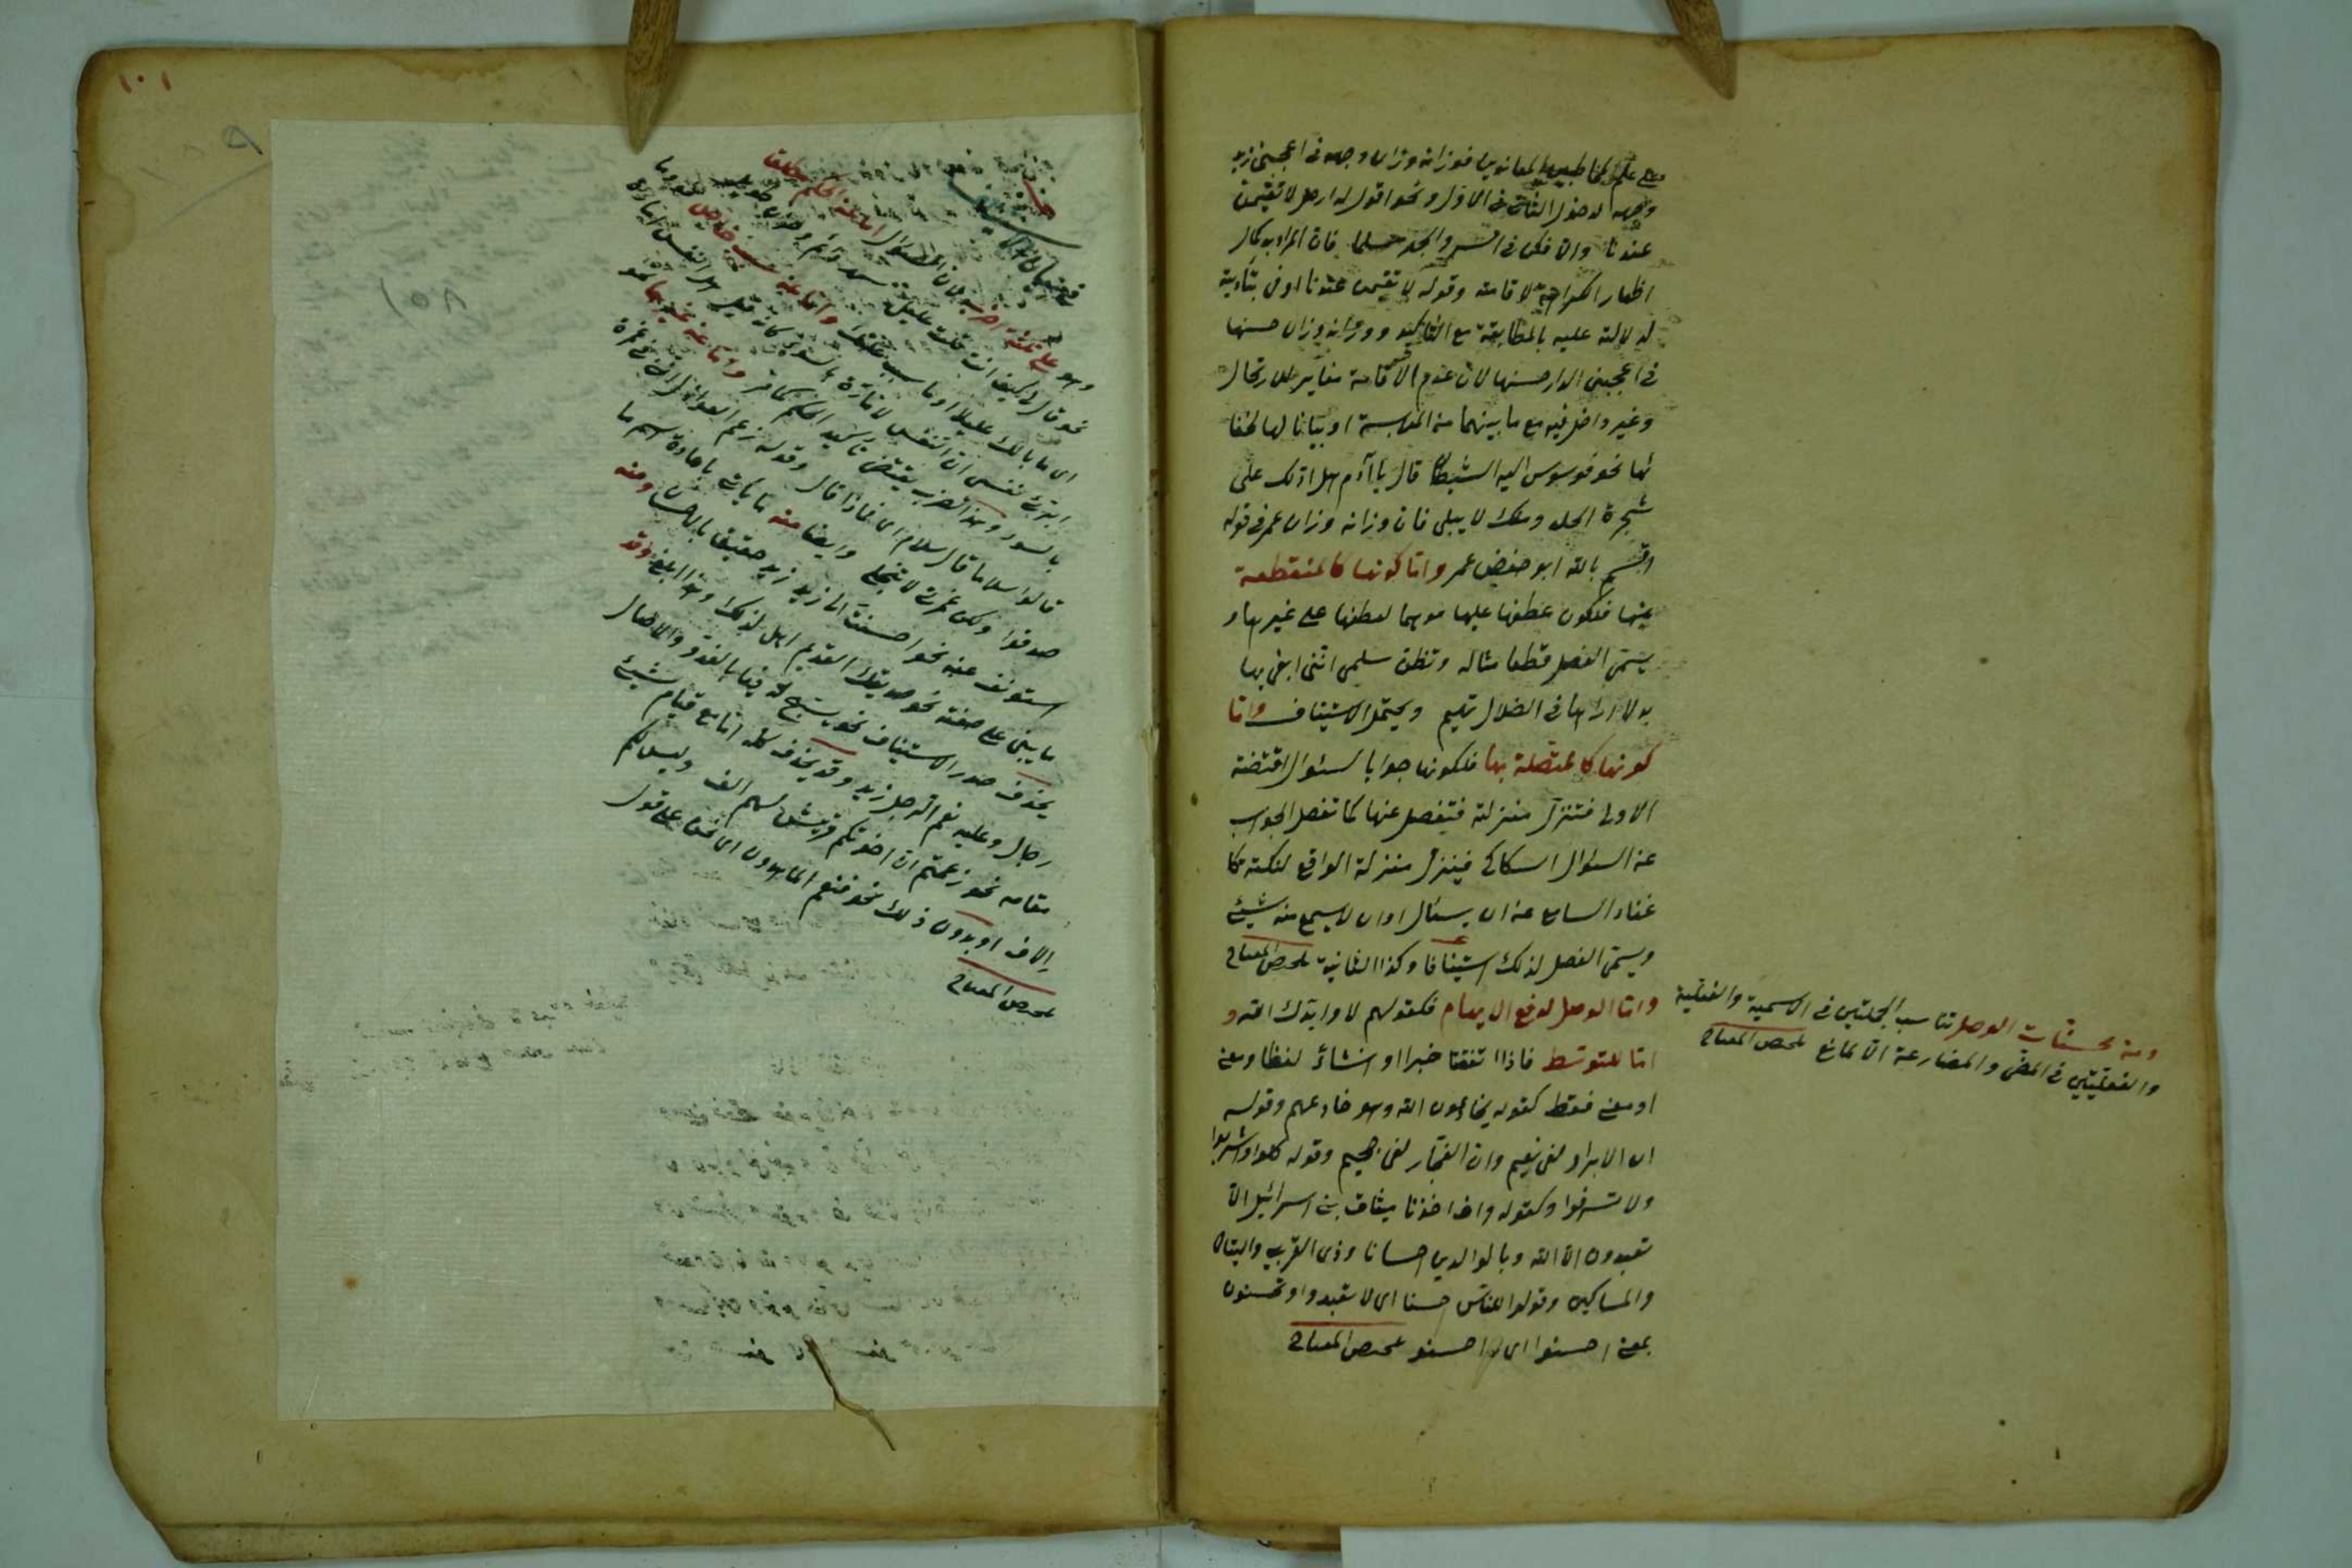 على علم المخاطبين بالمعانيين فوزانه وزان وجهه في اعجبني زيد
وجهه لدخول الثاني في الاول ونحو اقول له ارحل لا تقيمن
عندنا والا فكن في السر والجهر مسلما فان المراد به كمال
اظهار الكراهة لاقامته وقوله لا تقيمن عندنا اوفى بتأدية
لدلالته عليه بالمطابقة مع التاكيد ووزانه وزان حسنها
في اعجبني الدار حسنها لان عدم الاقامة مغاير للارتحال
وغير داخل فيه مع ما بينهما من الملابسة او بيانا لها لخفا
ئها نحو فوسوس اليه الشيطان قال يا آدم هل ادلك على
شجرة الخلد وملك لا يبلى فان وزانه وزان عمر في قوله
اقسم بالله ابو حفص عمر واما كونها كالمنقطعة
عنها فلكون عطفها عليها موهما لعطفها على غيرها و
يسمى الفصل قطعا مثاله وتظن سلمى انني ابغي بها
بدلا اراها في الضلال تهيم ويحتمل الاستيناف واما
كونها كالمتصلة بها فلكونها جوابا لسؤال اقتضته
الاولى فتنزل منزلته فتفصل عنها كما تفصل الجواب
عن السؤال السكاكي فينزل منزلة الواقع لنكتة كا
غناء السامع عن ان يسئال او ان لا يسمع منه شيئ
ويسمى الفصل لذلك استينافا وكذا الثانية ملخص المفتاح
واما الوصل لدفع الايهام فكقولهم لا وايدك الله و
اما للتوسط فاذا اتفقتا خبرا او انشائ لفظا ومعنى
او معنى فقط كقوله يخادعون الله وهو خادعهم وقوله
ان الابرار لفي نعيم وان الفجار لفي جحيم وقوله كلوا واشربوا
ولا تسرفوا وكقوله واذ اخذنا ميثاق بني اسرائيل لا
تعبدون الا الله وبالوالدين احسانا وذي القربى واليتامى
والمساكين وقولوا للناس حسنا اى لا تعبدوا وتحسنون
بمعنى احسنوا اى و احسنوا ملخص المفتاح
ومن محسنات الوصل تناسب الجملتين في الاسمية والفعلية
والفعليتين في المضي والمضارعة الا لمانع ملخص المفتاح
١٠١
١٥٨
وهو على ثلثة اضرب لان السؤال اما عن الحكم مطلقا
نحو قال لي كيف انت قلت عليل سهر دائم وحزن طويل
اى ما بالك عليلا او ما سبب علتك واما عن سبب خاص نحو وما
ابرئ نفسي ان النفس لامارة بالسوء كانه قيل هل النفس امارة
بالسوء وهذا الضرب يقتضي تأكيد الحكم كما مر واما عن غيرهما نحو
قالوا سلاما قال سلام اى فماذا قال وقوله زعم العواذل انني في غمرة
صدقوا ولكن غمرتي لا تنجلي وايضا منه ما يأتي باعادة اسم ما
استونف عنه نحو احسنت الى زيد زيد حقيق بالاحسان ومنه
ما يبنى على صفته نحو صديقك القديم اهل لذلك وهذا ابلغ وقد
يحذف صدر الاستيناف نحو يسبح له فيها بالغدو والاصال
رجال وعليه نعم الرجل زيد وقد يحذف كله اما مع قيام شيئ
مقامه نحو زعمتم ان اخوتكم قريش لهم الف وليس لكم
الاف او بدون ذلك نحو فنعم الماهدون اى نحن على قول
ملخص المفتاح